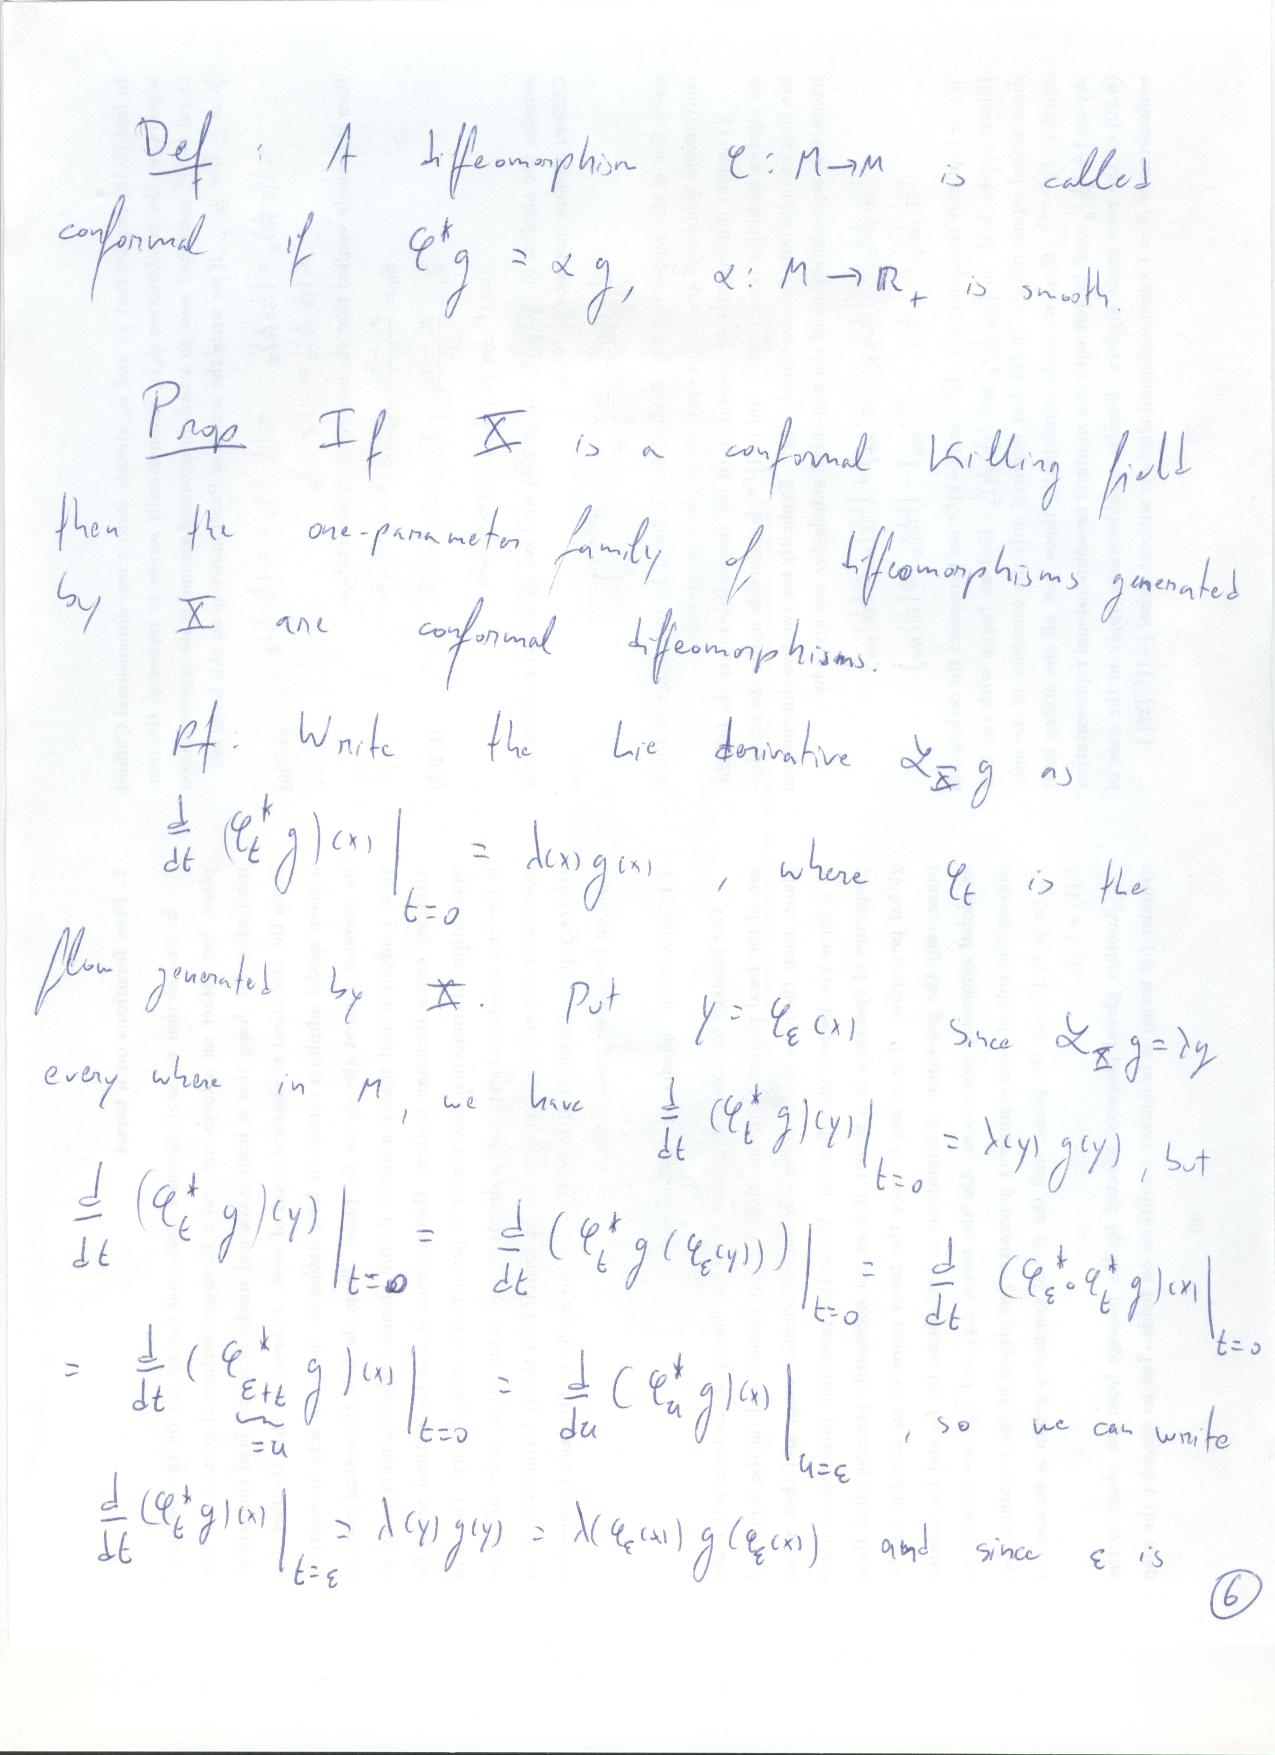 Def : A diffeomorphism φ : M → M is called
conformal if φ*g = α g, α : M → ℝ₊ is smooth.
Prop If X is a conformal Killing field
then the one-parameter family of diffeomorphisms generated
by X are conformal diffeomorphisms.
Pf: Write the Lie derivative ℒ_X g as
d/dt (φ_t* g)(x)|_{t=0} = λ(x) g(x) , where φ_t is the
flow generated by X. Put y = φ_ε(x) Since ℒ_X g = λg
every where in M, we have d/dt (φ_t* g)(y)|_{t=0} = λ(y) g(y), but
d/dt (φ_t* g)(y)|_{t=0} = d/dt (φ_t* g (φ_ε(y)))|_{t=0} = d/dt (φ_ε* ∘ φ_t* g)(x)|_{t=0}
= d/dt (φ*_{ε+t} g)(x)|_{t=0} = d/du (φ_u* g)(x)|_{u=ε} , so we can write
=u
d/dt (φ_t* g)(x)|_{t=ε} = λ(y) g(y) = λ(φ_ε(x)) g(φ_ε(x)) and since ε is
6